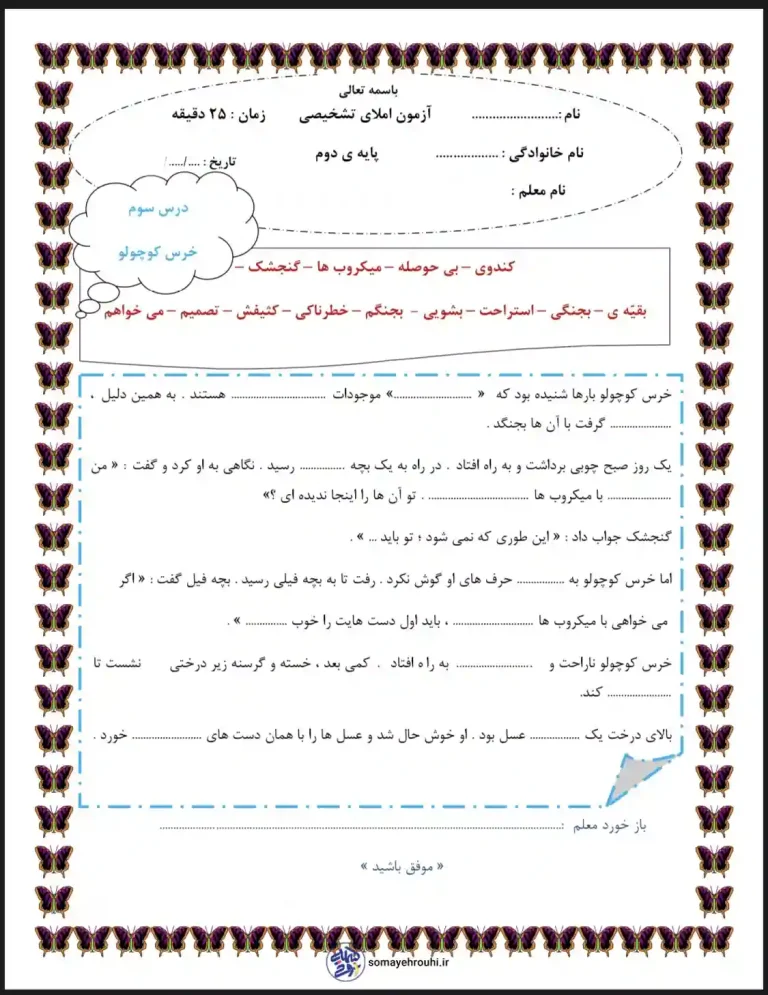 باسمه تعالی
نام :......................... آزمون املای تشخیصی زمان : ۲۵ دقیقه
نام خانوادگی : .................. پایه ی دوم تاریخ : ..../...../
نام معلم :
درس سوم
خرس کوچولو
کندوی – بی حوصله – میکروب ها – گنجشک –
بقیّه ی – بجنگی – استراحت – بشویی - بجنگم – خطرناکی – کثیفش – تصمیم – می خواهم
خرس کوچولو بارها شنیده بود که « ............................» موجودات .................................. هستند . به همین دلیل ،
...................... گرفت با آن ها بجنگد .
یک روز صبح چوبی برداشت و به راه افتاد . در راه به یک بچه ................ رسید . نگاهی به او کرد و گفت : « من
....................... با میکروب ها .................................... . تو آن ها را اینجا ندیده ای ؟»
گنجشک جواب داد : « این طوری که نمی شود ؛ تو باید ... » .
اما خرس کوچولو به ................. حرف های او گوش نکرد . رفت تا به بچه فیلی رسید . بچه فیل گفت : « اگر
می خواهی با میکروب ها ............................. ، باید اول دست هایت را خوب ............... » .
خرس کوچولو ناراحت و ........................... به را ه افتاد . کمی بعد ، خسته و گرسنه زیر درختی نشست تا
....................... کند.
بالای درخت یک .................. عسل بود . او خوش حال شد و عسل ها را با همان دست های ......................... خورد .
باز خورد معلم :................................................................................................................................
« موفق باشید »
somayehrouhi.ir